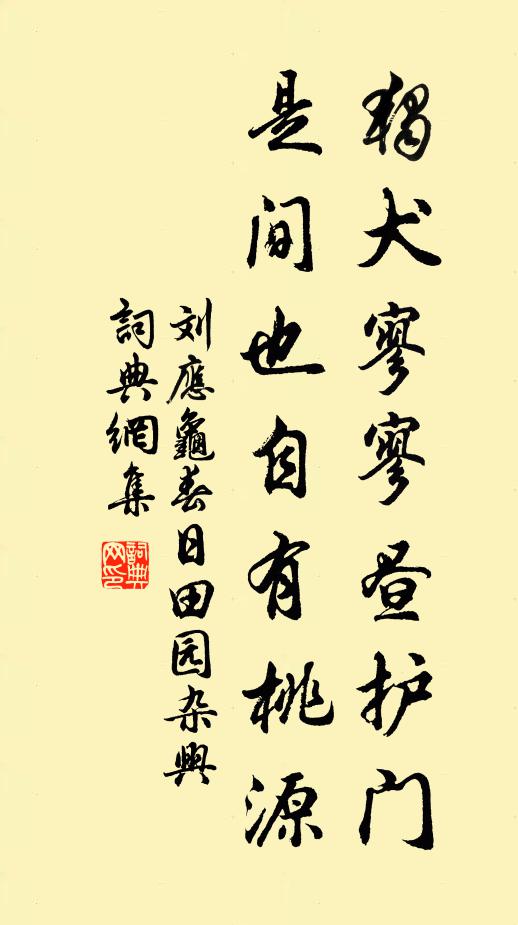 猲犬寥寥昼护门
是间也自有桃源
刘應龜春日田园杂興
詞典網集
詞典网印